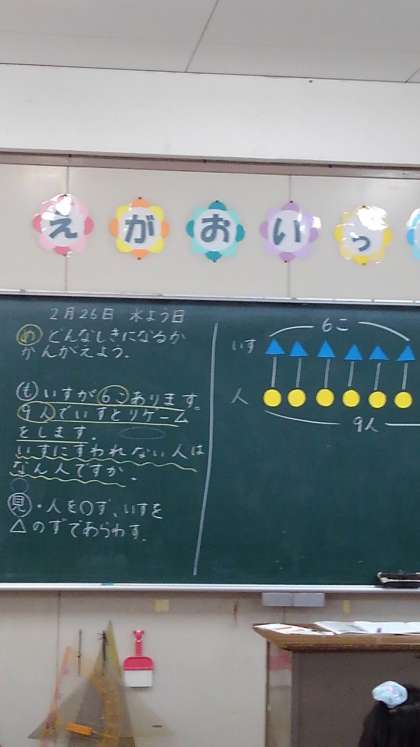 えがおいっ
2月26日 水よう日
め どんなしきになるか
かんがえよう。
も いすが6こあります。
9人でいすとりゲーム
をします。
いすにすわれない人は
なん人ですか。
見・人を○ず、いすを
△のずであらわす。
6こ
いす
人
9人